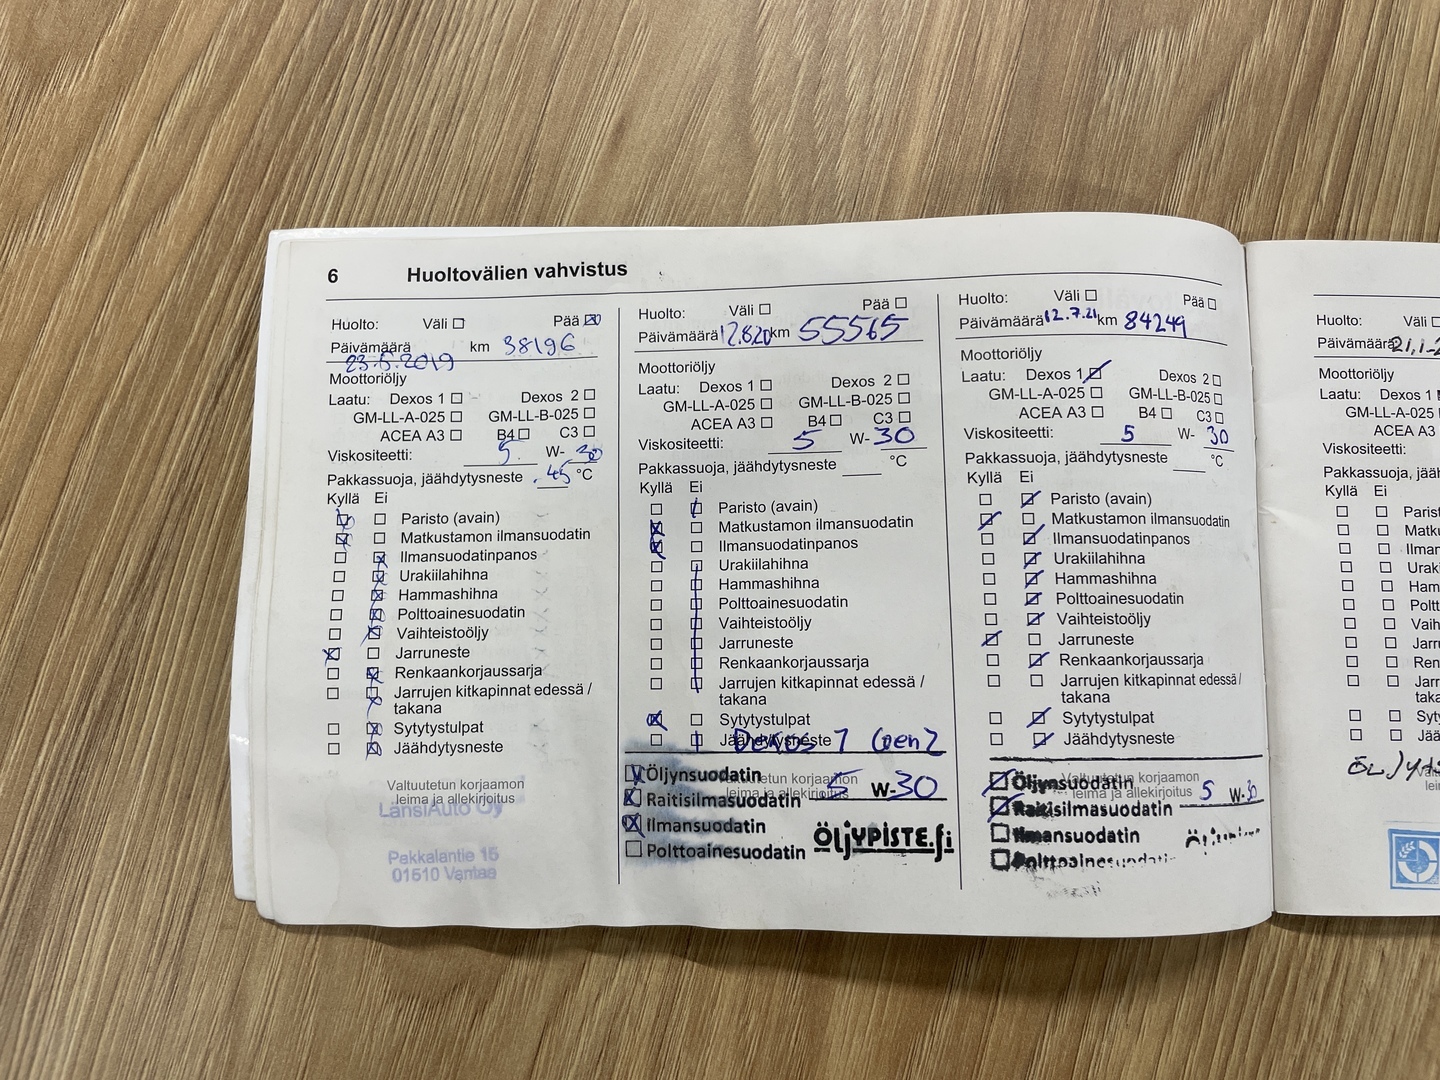 6 Huoltovälien vahvistus
Huolto: Väli ☐ Pää ☒
Päivämäärä km 38196
23.5.2019
Moottoriöljy
Laatu: Dexos 1 ☐ Dexos 2 ☐
GM-LL-A-025 ☐ GM-LL-B-025 ☐
ACEA A3 ☐ B4 ☐ C3 ☐
Viskositeetti: 5 W- 30
Pakkassuoja, jäähdytysneste -45 °C
Kyllä Ei
☒ ☐ Paristo (avain)
☒ ☐ Matkustamon ilmansuodatin
☐ ☒ Ilmansuodatinpanos
☐ ☒ Urakiilahihna
☐ ☒ Hammashihna
☐ ☒ Polttoainesuodatin
☐ ☒ Vaihteistoöljy
☒ ☐ Jarruneste
☐ ☒ Renkaankorjaussarja
☐ ☒ Jarrujen kitkapinnat edessä /
takana
☐ ☒ Sytytystulpat
☐ ☒ Jäähdytysneste
Valtuutetun korjaamon
leima ja allekirjoitus
LänsiAuto Oy
Pakkalantie 15
01510 Vantaa
Huolto: Väli ☐ Pää ☐
Päivämäärä 12.8.20 km 55565
Moottoriöljy
Laatu: Dexos 1 ☐ Dexos 2 ☐
GM-LL-A-025 ☐ GM-LL-B-025 ☐
ACEA A3 ☐ B4 ☐ C3 ☐
Viskositeetti: 5 W- 30
Pakkassuoja, jäähdytysneste °C
Kyllä Ei
☐ ☒ Paristo (avain)
☒ ☐ Matkustamon ilmansuodatin
☒ ☐ Ilmansuodatinpanos
☐ ☒ Urakiilahihna
☐ ☒ Hammashihna
☐ ☒ Polttoainesuodatin
☐ ☒ Vaihteistoöljy
☐ ☒ Jarruneste
☐ ☒ Renkaankorjaussarja
☐ ☒ Jarrujen kitkapinnat edessä /
takana
☒ ☐ Sytytystulpat
☐ ☒ Jäähdytysneste
Dexos 1 Gen 2
Valtuutetun korjaamon
leima ja allekirjoitus
☒ Öljynsuodatin
☒ Raitisilmasuodatin 5 W-30
☒ Ilmansuodatin
☐ Polttoainesuodatin
ÖLJYPISTE.fi
Huolto: Väli ☐ Pää ☐
Päivämäärä 12.7.21 km 84249
Moottoriöljy
Laatu: Dexos 1 ☒ Dexos 2 ☐
GM-LL-A-025 ☐ GM-LL-B-025 ☐
ACEA A3 ☐ B4 ☐ C3 ☐
Viskositeetti: 5 W- 30
Pakkassuoja, jäähdytysneste °C
Kyllä Ei
☐ ☒ Paristo (avain)
☒ ☐ Matkustamon ilmansuodatin
☐ ☒ Ilmansuodatinpanos
☐ ☒ Urakiilahihna
☐ ☒ Hammashihna
☐ ☒ Polttoainesuodatin
☐ ☒ Vaihteistoöljy
☒ ☐ Jarruneste
☐ ☒ Renkaankorjaussarja
☐ ☐ Jarrujen kitkapinnat edessä /
takana
☐ ☒ Sytytystulpat
☐ ☒ Jäähdytysneste
Valtuutetun korjaamon
leima ja allekirjoitus
☒ Öljynsuodatin
☒ Raitisilmasuodatin 5 W-30
☐ Ilmansuodatin
☐ Polttoainesuodatin
Huolto: Väli
Päivämäärä 21.1.2
Moottoriöljy
Laatu: Dexos 1
GM-LL-A-025
ACEA A3
Viskositeetti:
Pakkassuoja, jääh
Kyllä Ei
☐ ☐ Parist
☐ ☐ Matku
☐ ☐ Ilman
☐ ☐ Uraki
☐ ☐ Ham
☐ ☐ Poltt
☐ ☐ Vaih
☐ ☐ Jarr
☐ ☐ Ren
☐ ☐ Jarr
taka
☐ ☐ Syty
☐ ☐ Jää